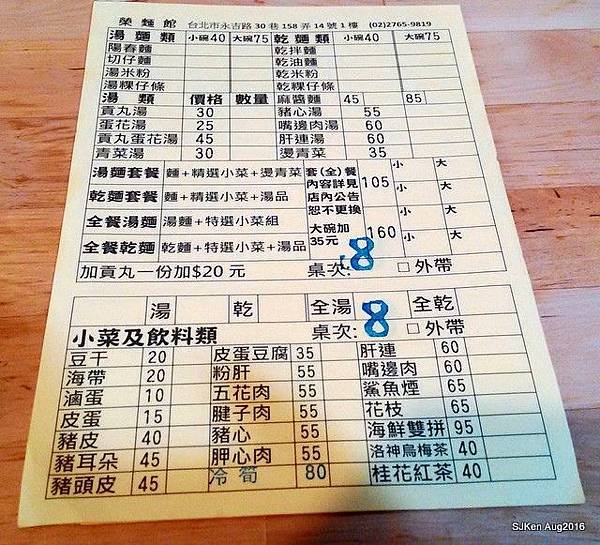 榮麵館 台北市永吉路30巷158弄14號1樓 (02)2765-9819
湯麵類 小碗40 大碗75 乾麵類 小碗40 大碗75
陽春麵 乾拌麵
切仔麵 乾油麵
湯米粉 乾米粉
湯粿仔條 乾粿仔條
湯類 價格 數量 麻醬麵 45 85
貢丸湯 30 豬心湯 55
蛋花湯 25 嘴邊肉湯 60
貢丸蛋花湯 45 肝連湯 60
青菜湯 30 燙青菜 35
湯麵套餐 麵+精選小菜+燙青菜 套(全)餐內容詳見店內公告恕不更換 105 小 大
乾麵套餐 麵+精選小菜+湯品 小 大
全餐湯麵 湯麵+特選小菜組 大碗加35元 160 小 大
全餐乾麵 乾麵+特選小菜+湯品 小 大
加貢丸一份加$20元 桌次: 8 □外帶
湯 乾 全湯 全乾
小菜及飲料類 桌次: 8 □外帶
豆干 20 皮蛋豆腐 35 肝連 60
海帶 20 粉肝 55 嘴邊肉 60
滷蛋 10 五花肉 55 鯊魚煙 65
皮蛋 15 腱子肉 55 花枝 65
豬皮 40 豬心 55 海鮮雙拼 95
豬耳朵 45 胛心肉 55 洛神烏梅茶 40
豬頭皮 45 冷筍 80 桂花紅茶 40
SJKen Aug2016